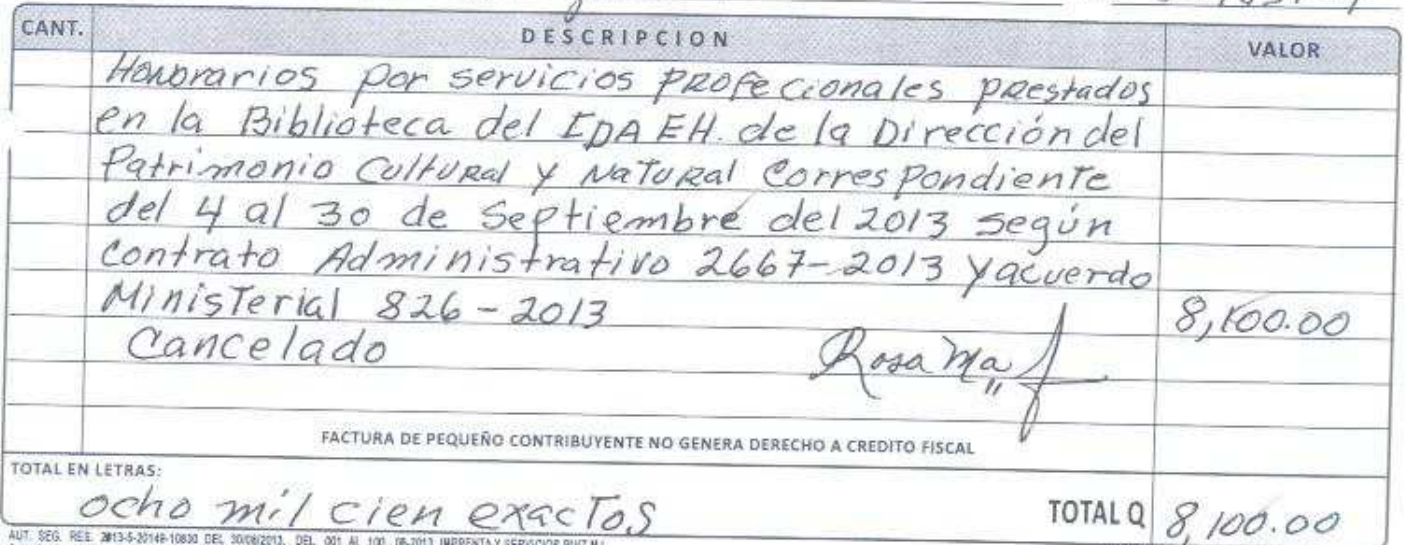 CANT. DESCRIPCION VALOR
Honorarios por servicios profecionales prestados
en la Biblioteca del IDAEH. de la Dirección del
Patrimonio Cultural y Natural Correspondiente
del 4 al 30 de Septiembre del 2013 según
Contrato Administrativo 2667-2013 y acuerdo
Ministerial 826-2013 8,100.00
Cancelado Rosa Ma
FACTURA DE PEQUEÑO CONTRIBUYENTE NO GENERA DERECHO A CREDITO FISCAL
TOTAL EN LETRAS:
ocho mil cien exactos TOTAL Q 8,100.00
AUT. SEG. RES. 2013-5-20149-10830 DEL 30/08/2013. DEL 001 AL 100 08-2013 IMPRENTA Y SERVICIOS RUIZ